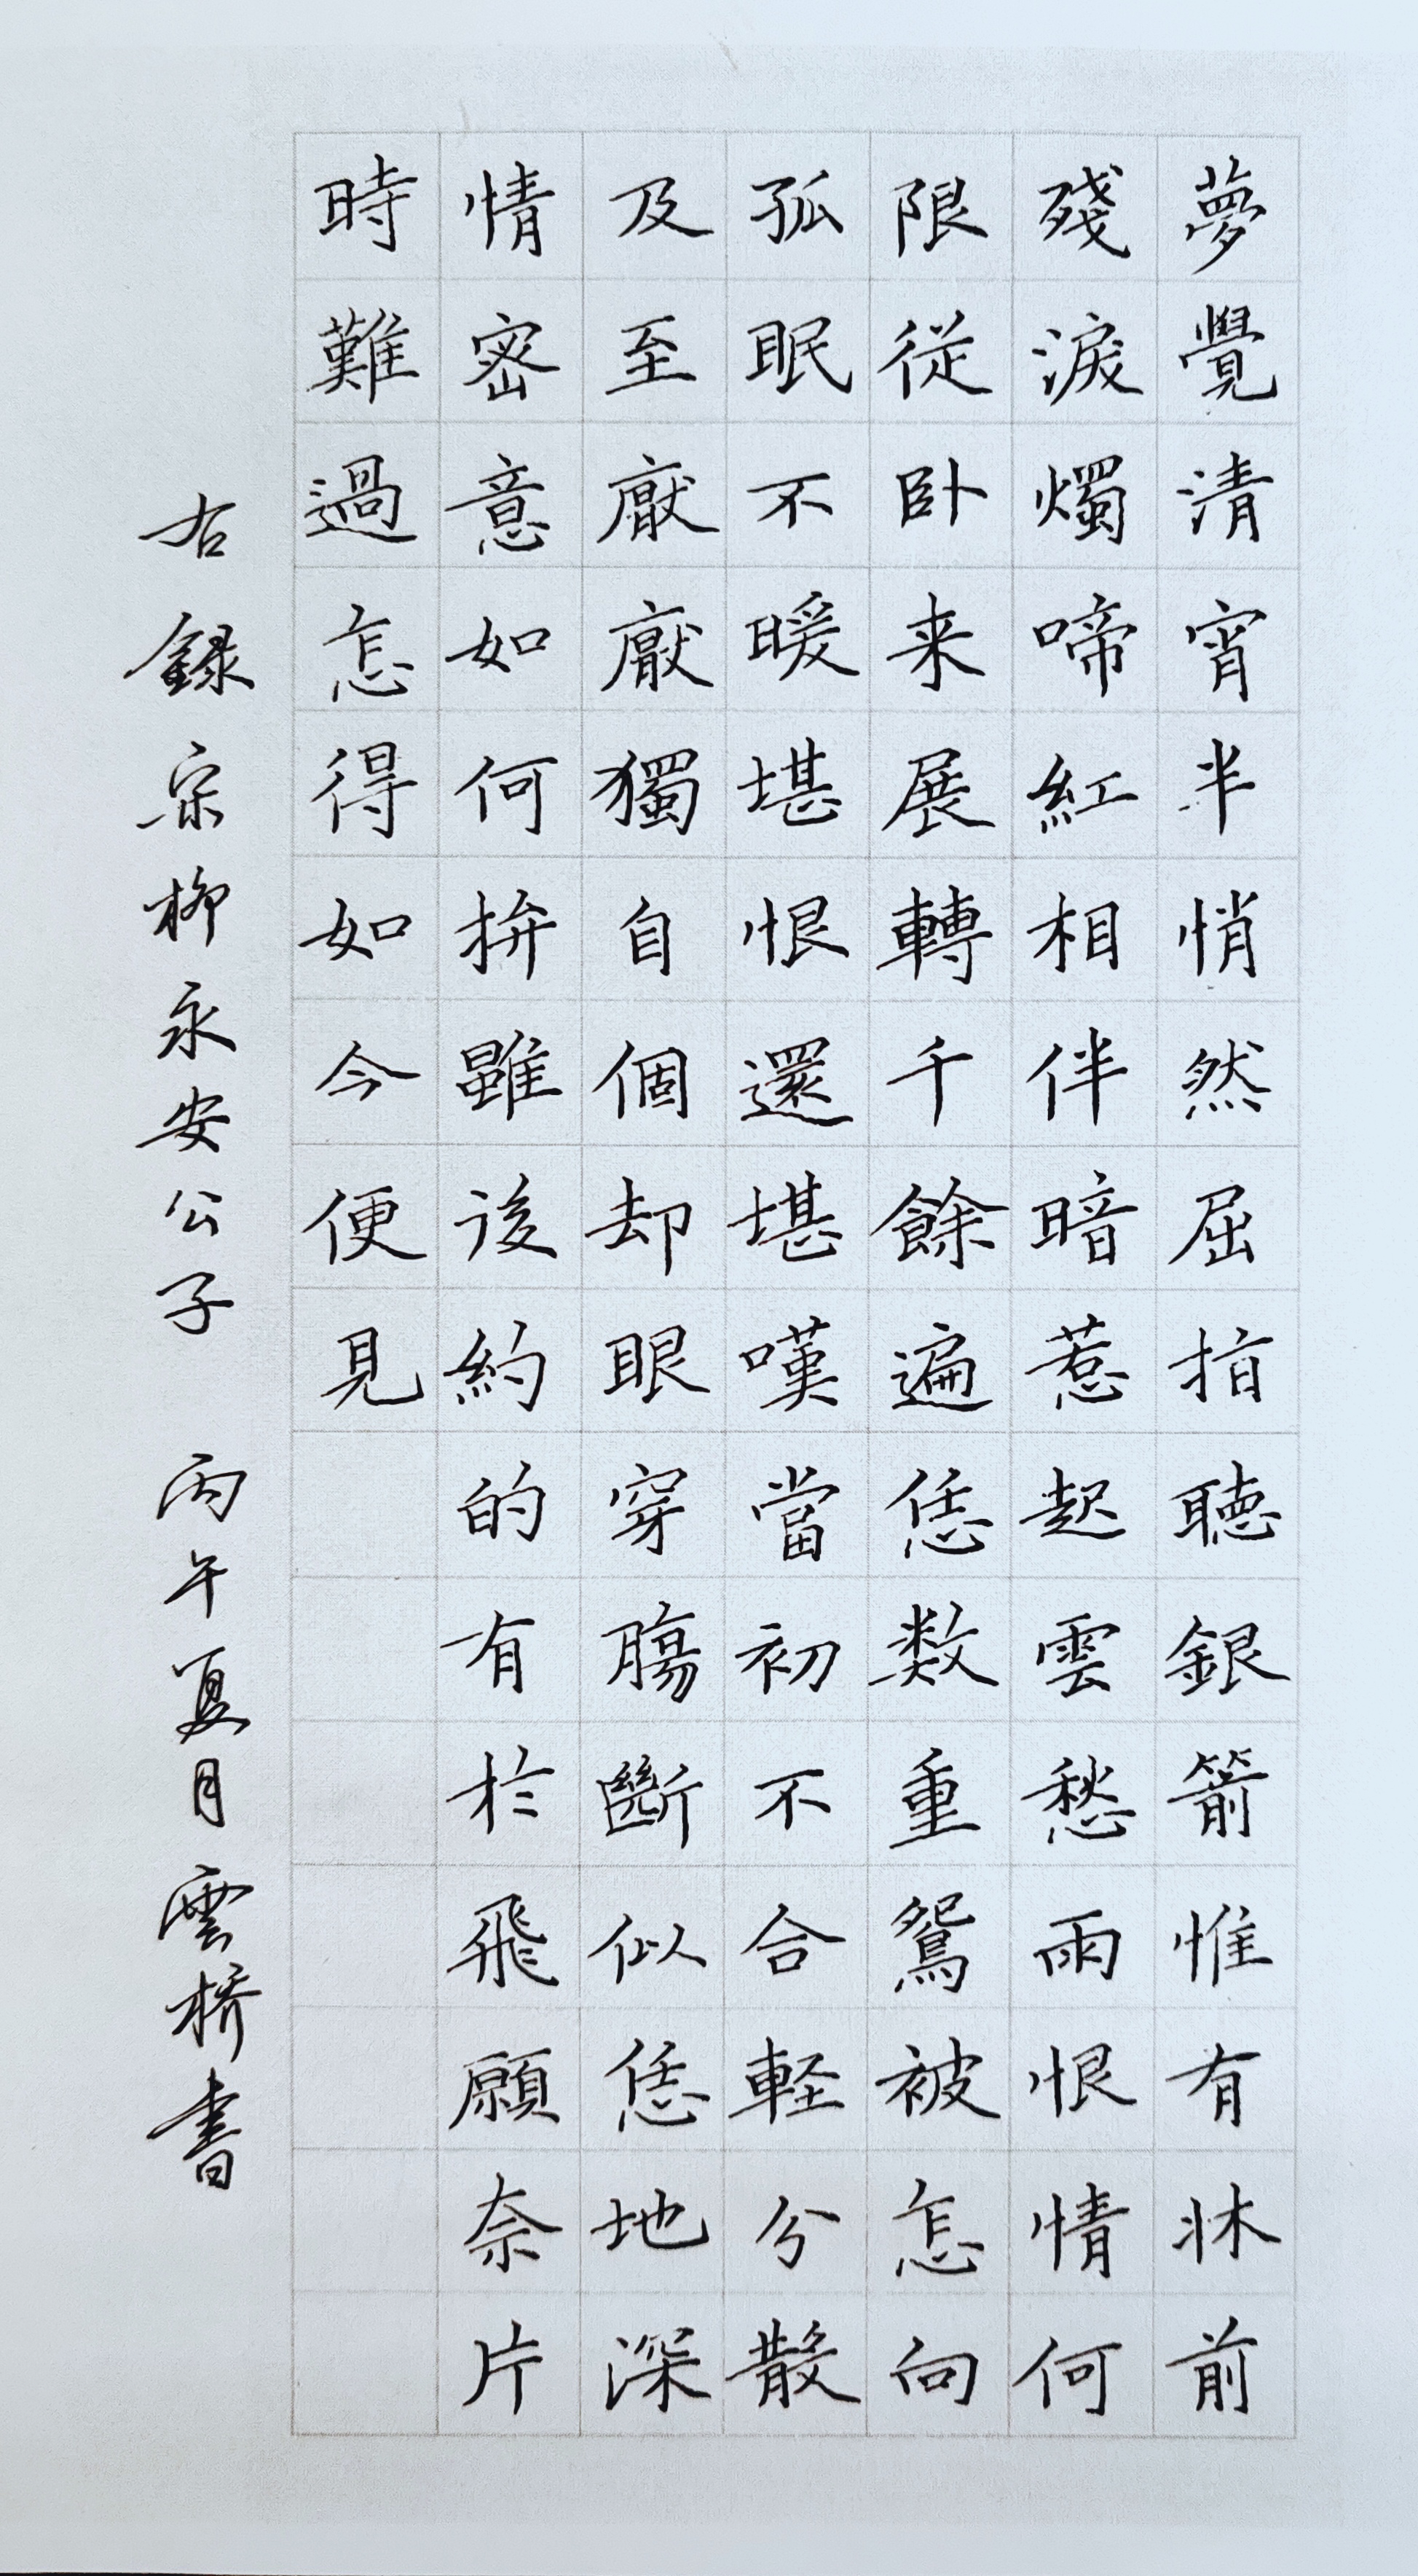 夢覺清宵半悄然屈指聽銀箭惟有牀前
殘淚燭啼紅相伴暗惹起雲愁雨恨情何
限從卧来展轉千餘遍恁数重鴛被怎向
孤眠不暖堪恨還堪嘆當初不合軽分散
及至厭厭獨自個却眼穿腸斷似恁地深
情密意如何拚雖後約的有於飛願奈片
時難過怎得如今便見
右録宗柳永安公子 丙午夏月雲橋書